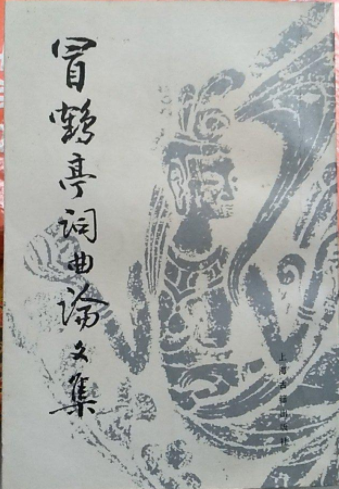 冒鹤亭词曲论文集
上海古籍出版社